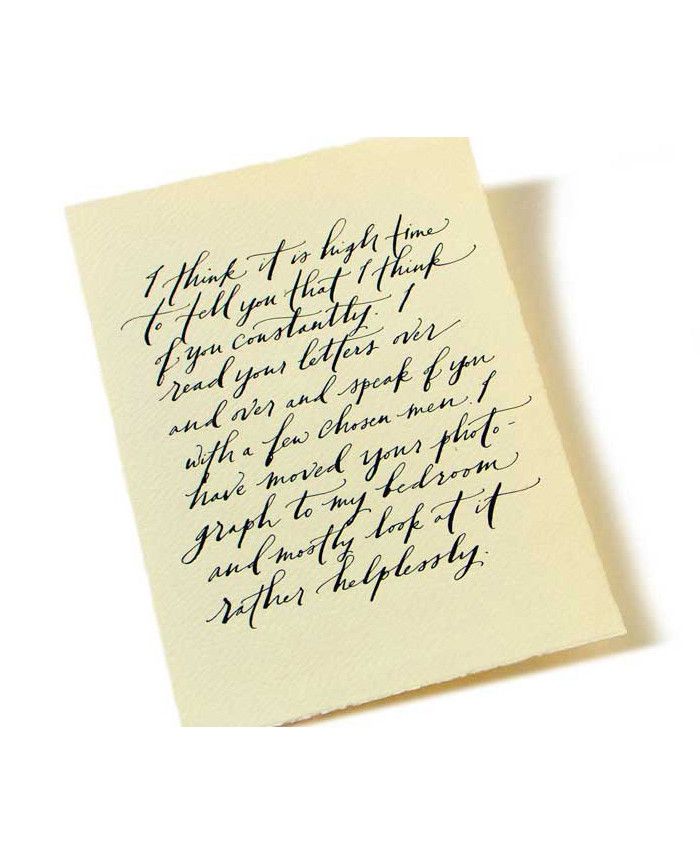 I think it is high time
to tell you that I think
of you constantly. I
read your letters over
and over and speak of you
with a few chosen men. I
have moved your photo-
graph to my bedroom
and mostly look at it
rather helplessly.